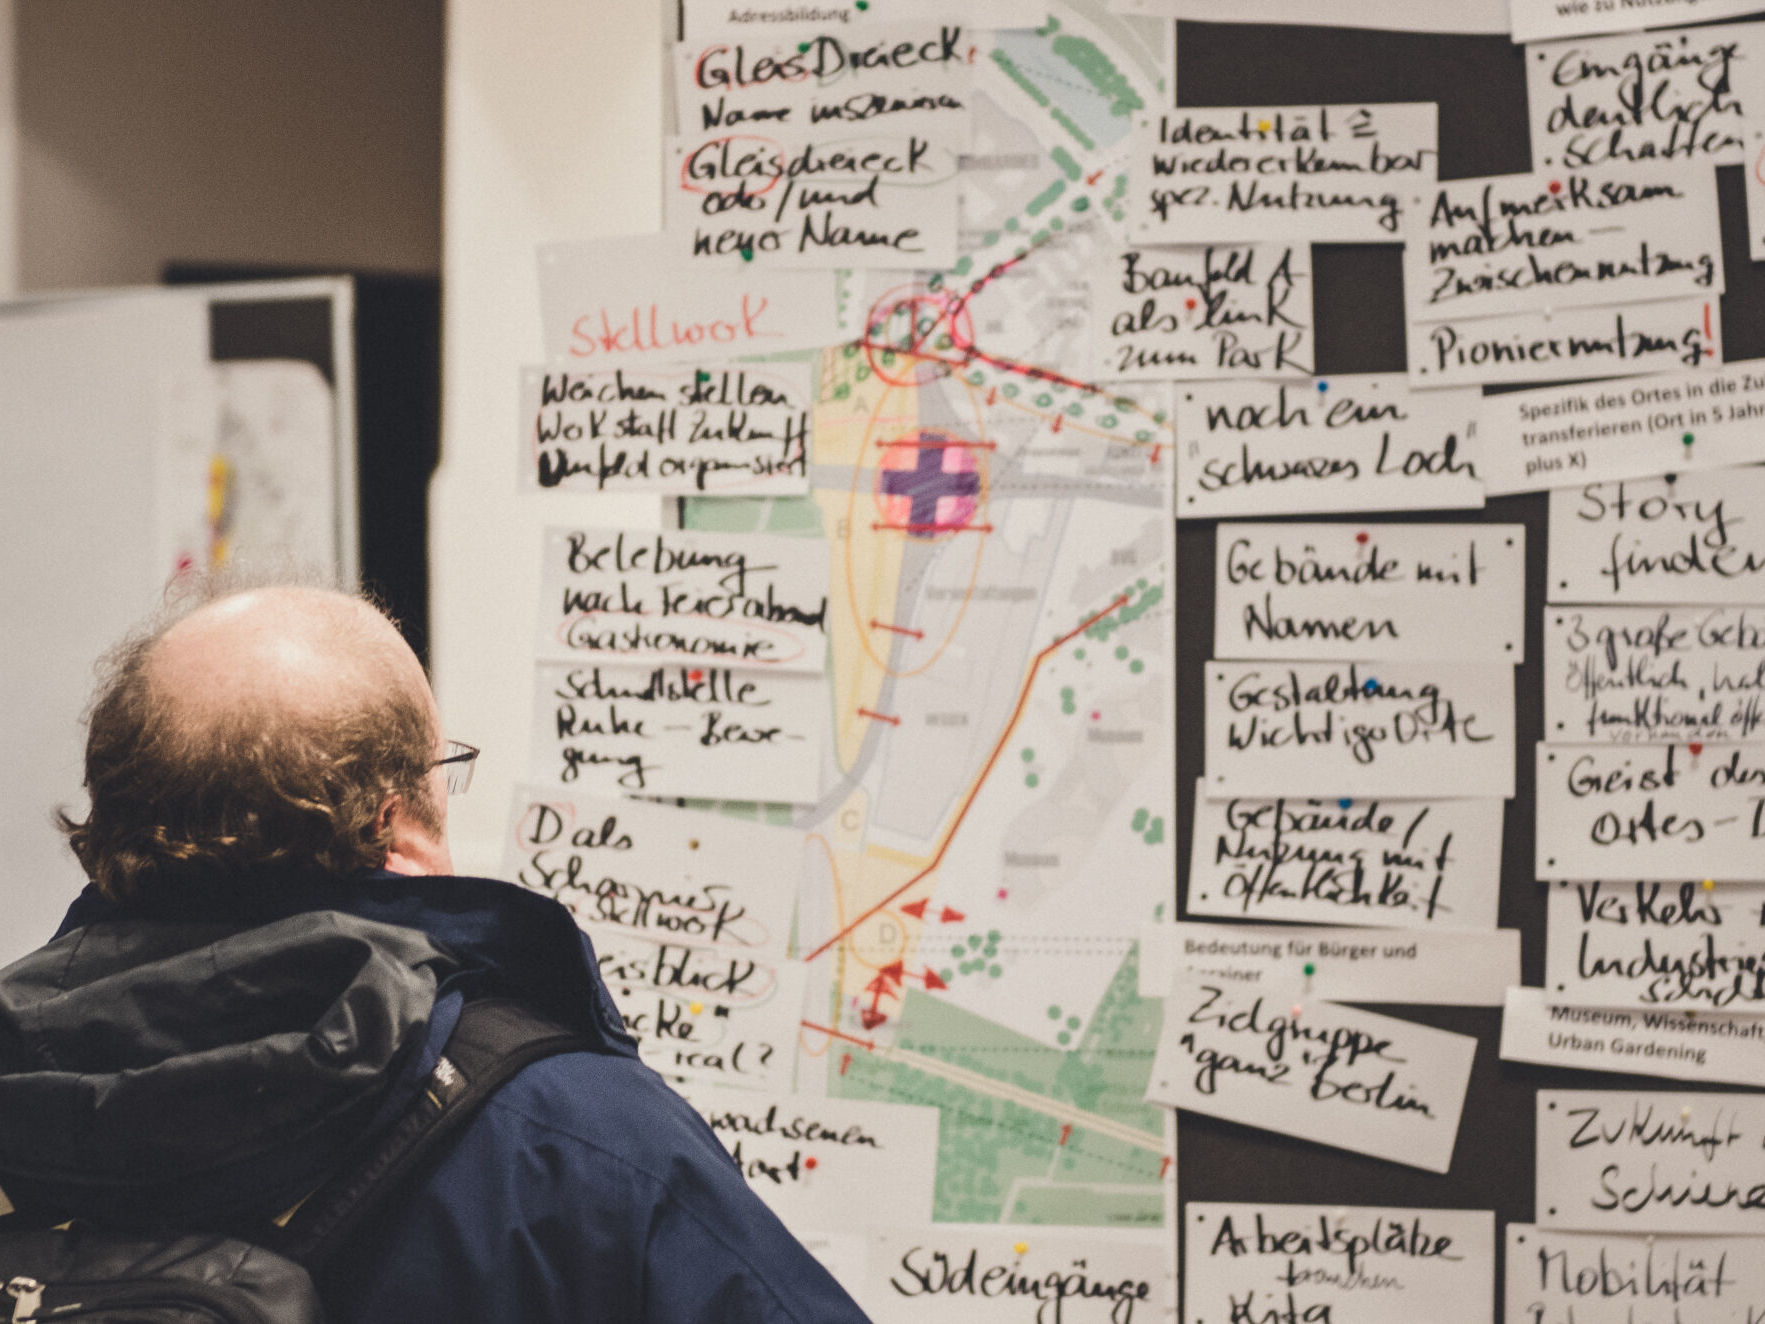 Adressbildung
GleisDreieck
Name inszenieren
Gleisdreieck
oder/und
neuer Name
Stellwerk
Weichen stellen
Werkstatt Zukunft
Umfeld organisiert
Belebung
nach Feierabend
Gastronomie
Schnittstelle
Ruhe – Bewe-
gung
D als
Scharnier
Stellwerk
eisblick
cke"
real?
wachsenen
Südeingänge
Identität ≙
wiedererkennbar
spez. Nutzung
Baufeld A
als link
zum Park
"noch ein
schwarzes Loch"
Gebäude mit
Namen
Gestaltung
Wichtige Orte
Gebäude/
Nutzung mit
Öffentlichkeit
Bedeutung für Bürger und
Zielgruppe
"ganz Berlin"
Arbeitsplätze
Kita
wie zu Nutzung
Eingänge
deutlich
schaffen
Aufmerksam
machen –
Zwischennutzung
Pioniernutzung!
Spezifik des Ortes in die Zu
transferieren (Ort in 5 Jahr
plus X)
Story
finden
3 große Geb
öffentlich,
funktional öff
vorhanden
Geist des
Ortes –
Verkehr
Industrie
Museum, Wissenschaft
Urban Gardening
Zukunft
Schiene
Mobilität
A
B
C
D
Veranstaltungen
Museum
Museum